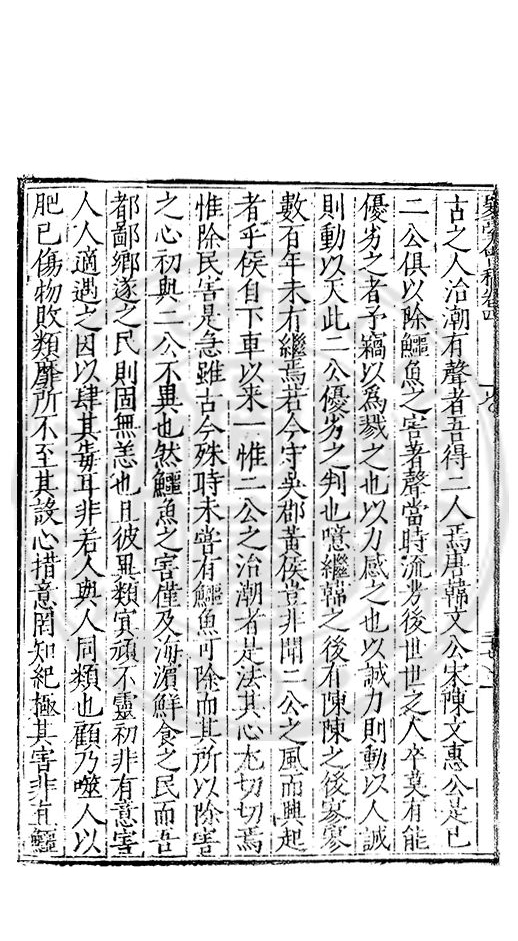 古之人治潮有聲者吾得二人焉唐韓文公宋陳文惠公是已
二公俱以除鱷魚之害著聲當時流芳後世世之人卒莫有能
優劣之者予竊以為戮之也以力感之也以誠力則動以人誠
則動以天此二公優劣之判也噫繼韓之後有陳陳之後寥寥
數百年未有繼焉若今守吳郡黃侯豈非聞二公之風而興起
者乎侯自下車以來一惟二公之治潮者是法其心尤切切焉
惟除民害是急雖古今殊時未嘗有鱷魚可除而其所以除害
之心初與二公不異也然鱷魚之害僅及海濱鮮食之民而吾
都鄙鄉遂之民則固無恙也且彼異類冥頑不靈初非有意害
人人適遇之因以肆其毒耳非若人與人同類也顧乃噬人以
肥己傷物敗類靡所不至其設心措意罔知紀極其害非直鱷